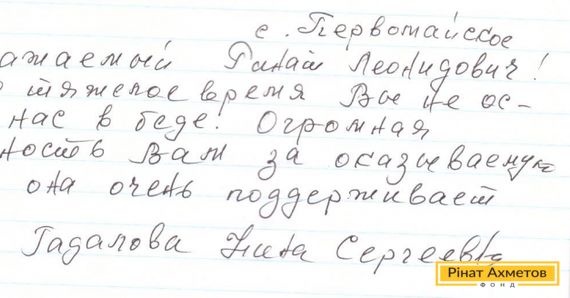 с. Первомайское
ажаемый Ринат Леонидович!
тяжелое время Вы не ос-
нас в беде. Огромная
ность Вам за оказываемую
она очень поддерживает
Гадалова Нина Сергеевна
Рінат Ахметов
ФОНД